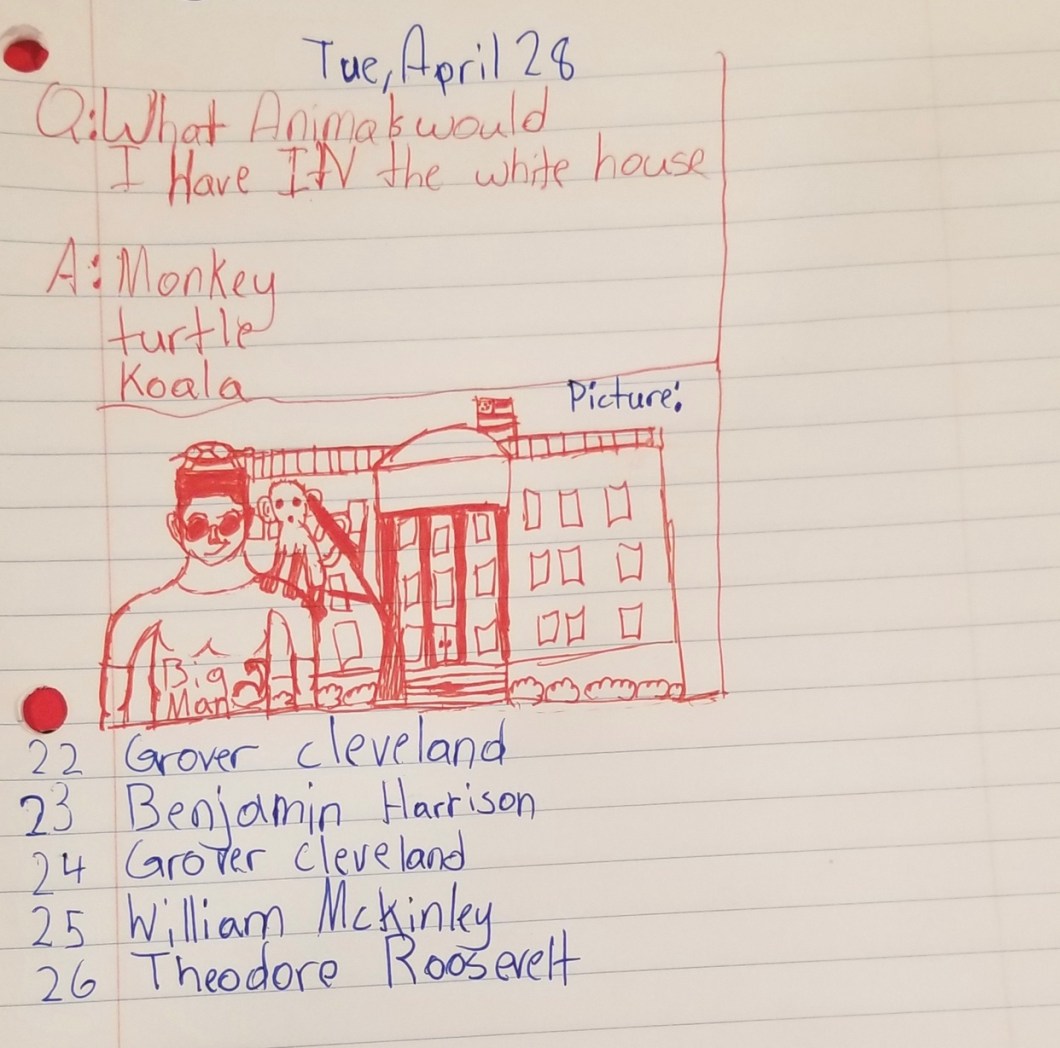 Tue, April 28
Q: What Animals would
I Have IN the white house
A: Monkey
turtle
Koala
Picture:
Big
Man
22 Grover cleveland
23 Benjamin Harrison
24 Grover cleveland
25 William McKinley
26 Theodore Roosevelt